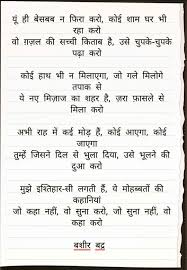 यूं ही बेसबब न फिरा करो, कोई शाम घर भी
रहा करो
वो ग़ज़ल की सच्ची किताब है, उसे चुपके-चुपके
पढ़ा करो
कोई हाथ भी न मिलाएगा, जो गले मिलोगे
तपाक से
ये नए मिज़ाज का शहर है, ज़रा फ़ासले से
मिला करो
अभी राह में कई मोड़ हैं, कोई आएगा, कोई
जाएगा
तुम्हें जिसने दिल से भुला दिया, उसे भूलने की
दुआ करो
मुझे इश्तिहार-सी लगती हैं, ये मोहब्बतों की
कहानियां
जो कहा नहीं, वो सुना करो, जो सुना नहीं, वो
कहा करो
बशीर बद्र